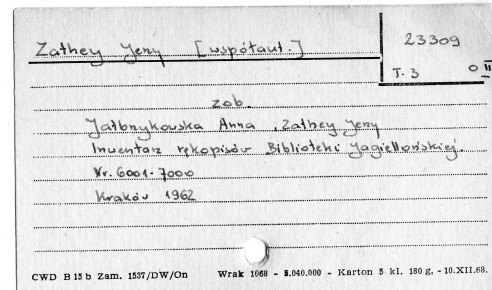 Zathey Jerzy [współaut.]
23309
T. 3 O II
zob.
Jałbrzykowska Anna, Zathey Jerzy
Inwentarz rękopisów Biblioteki Jagiellońskiej.
Nr. 6001-7000
Kraków 1962
CWD B 15 b Zam. 1537/DW/On Wrak 1068 - 5.040.000 - Karton 5 kl. 180 g. - 10.XII.68.